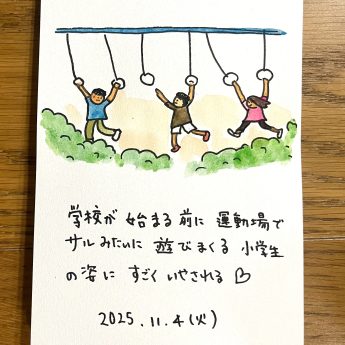 学校が 始まる 前に 運動場で
サルみたいに 遊びまくる 小学生
の姿に すごく いやされる ♡
2025.11.4(火)